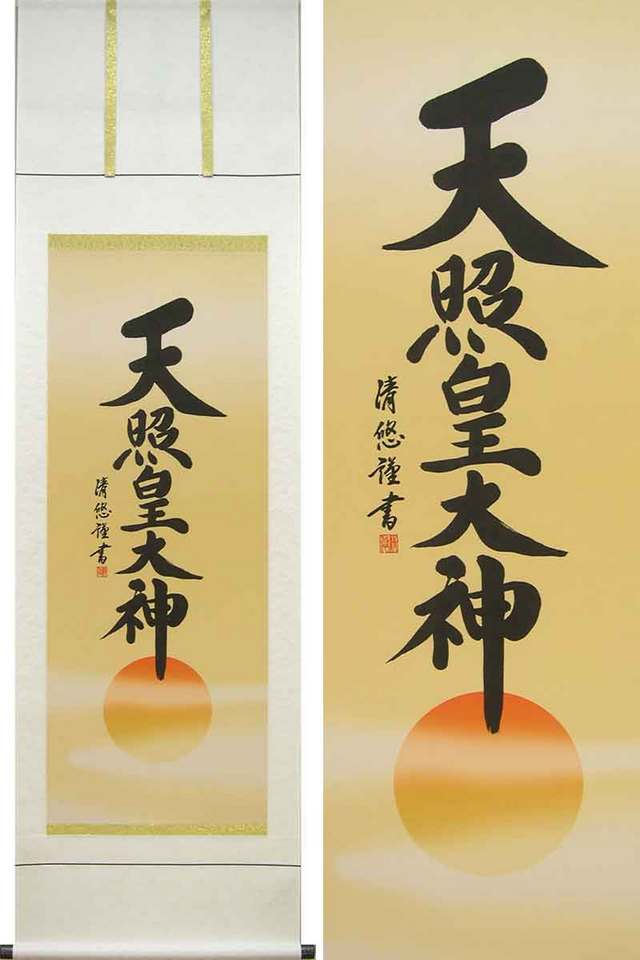 天照皇大神
清悠謹書
天照皇大神
清悠謹書